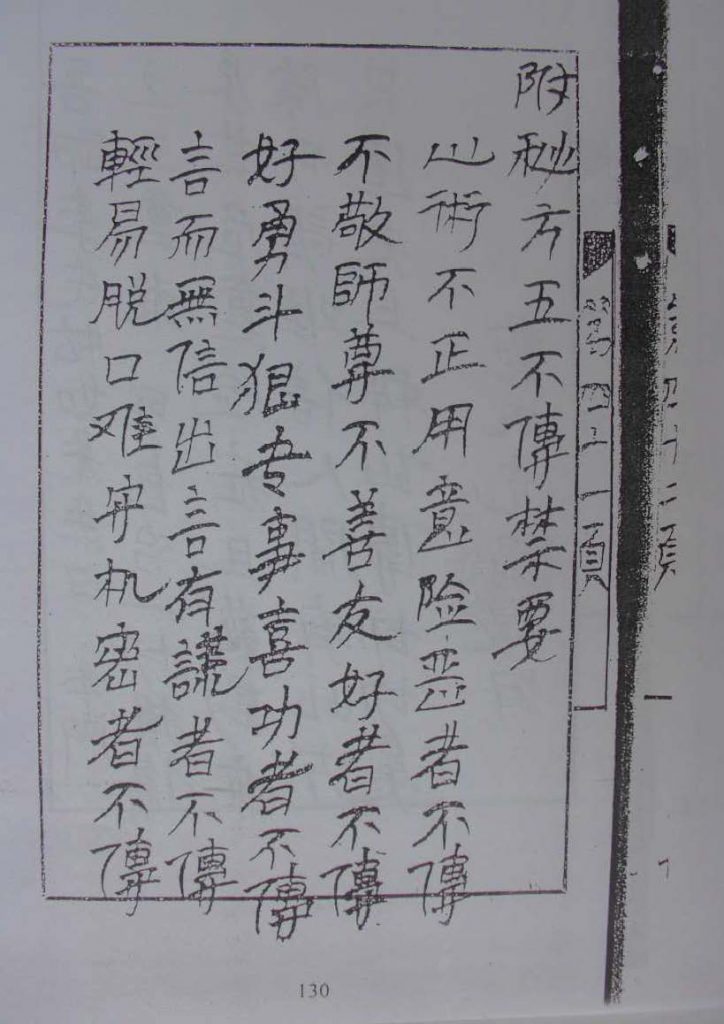 第四十一頁
附秘方五不傳禁要
心術不正用意险恶者不傳
不敬師尊不善友好者不傳
好勇斗狠专事喜功者不傳
言而無信出言有謊者不傳
輕易脱口难守机密者不傳
130